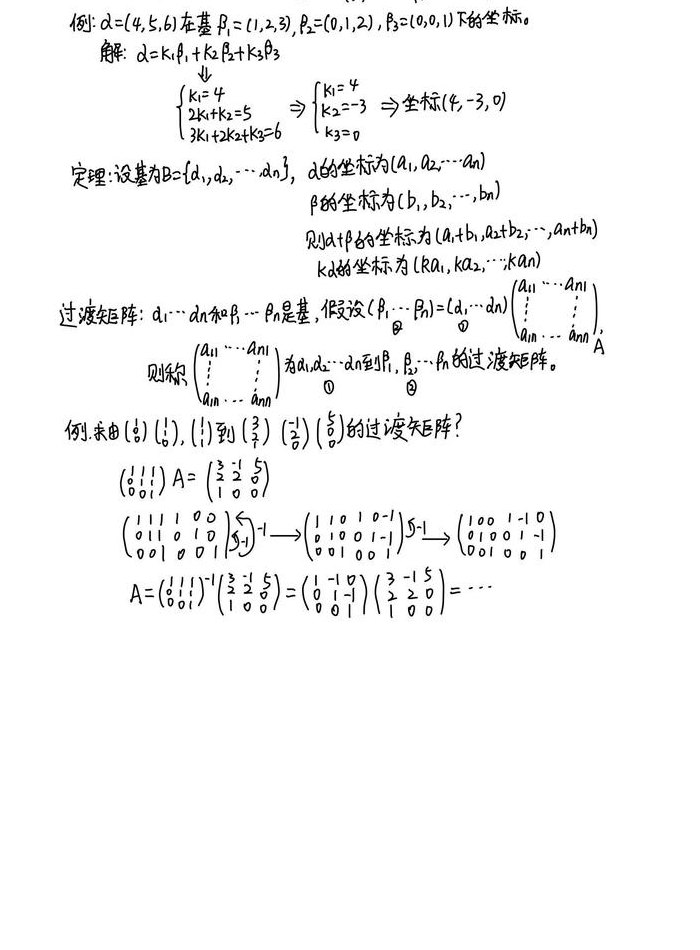 例: α=(4,5,6)在基β₁=(1,2,3), β₂=(0,1,2), β₃=(0,0,1)下的坐标。
解: α=k₁β₁+k₂β₂+k₃β₃
⇓
{k₁=4 2k₁+k₂=5 3k₁+2k₂+k₃=6 ⇒ {k₁=4 k₂=-3 k₃=0 ⇒ 坐标(4,-3,0)
定理:设基为B={α₁,α₂,…,αn}, α的坐标为(a₁,a₂,…an)
β的坐标为(b₁,b₂,…,bn)
则α+β的坐标为(a₁+b₁,a₂+b₂,…,an+bn)
kα的坐标为(ka₁,ka₂,…,kan)
过渡矩阵: α₁…αn和β₁…βn是基,假设(β₁…βn)=(α₁…αn)(a₁₁ … an₁ ⋮ ⋮ a₁n … ann)
② ① A
则称(a₁₁ … an₁ ⋮ ⋮ a₁n … ann)为α₁,α₂…αn到β₁,β₂,…βn的过渡矩阵。
① ②
例.求由(1 0 0)(1 1 0),(1 1 1)到(3 2 1)(-1 2 0)(5 0 0)的过渡矩阵?
(1 1 1 0 1 1 0 0 1)A=(3 -1 5 2 2 0 1 0 0)
(1 1 1 1 0 0 0 1 1 0 1 0 0 0 1 0 0 1)-1 -1 → (1 1 0 1 0 -1 0 1 0 0 1 -1 0 0 1 0 0 1)-1 → (1 0 0 1 -1 0 0 1 0 0 1 -1 0 0 1 0 0 1)
A=(1 1 1 0 1 1 0 0 1)⁻¹(3 -1 5 2 2 0 1 0 0)=(1 -1 0 0 1 -1 0 0 1)(3 -1 5 2 2 0 1 0 0)=…